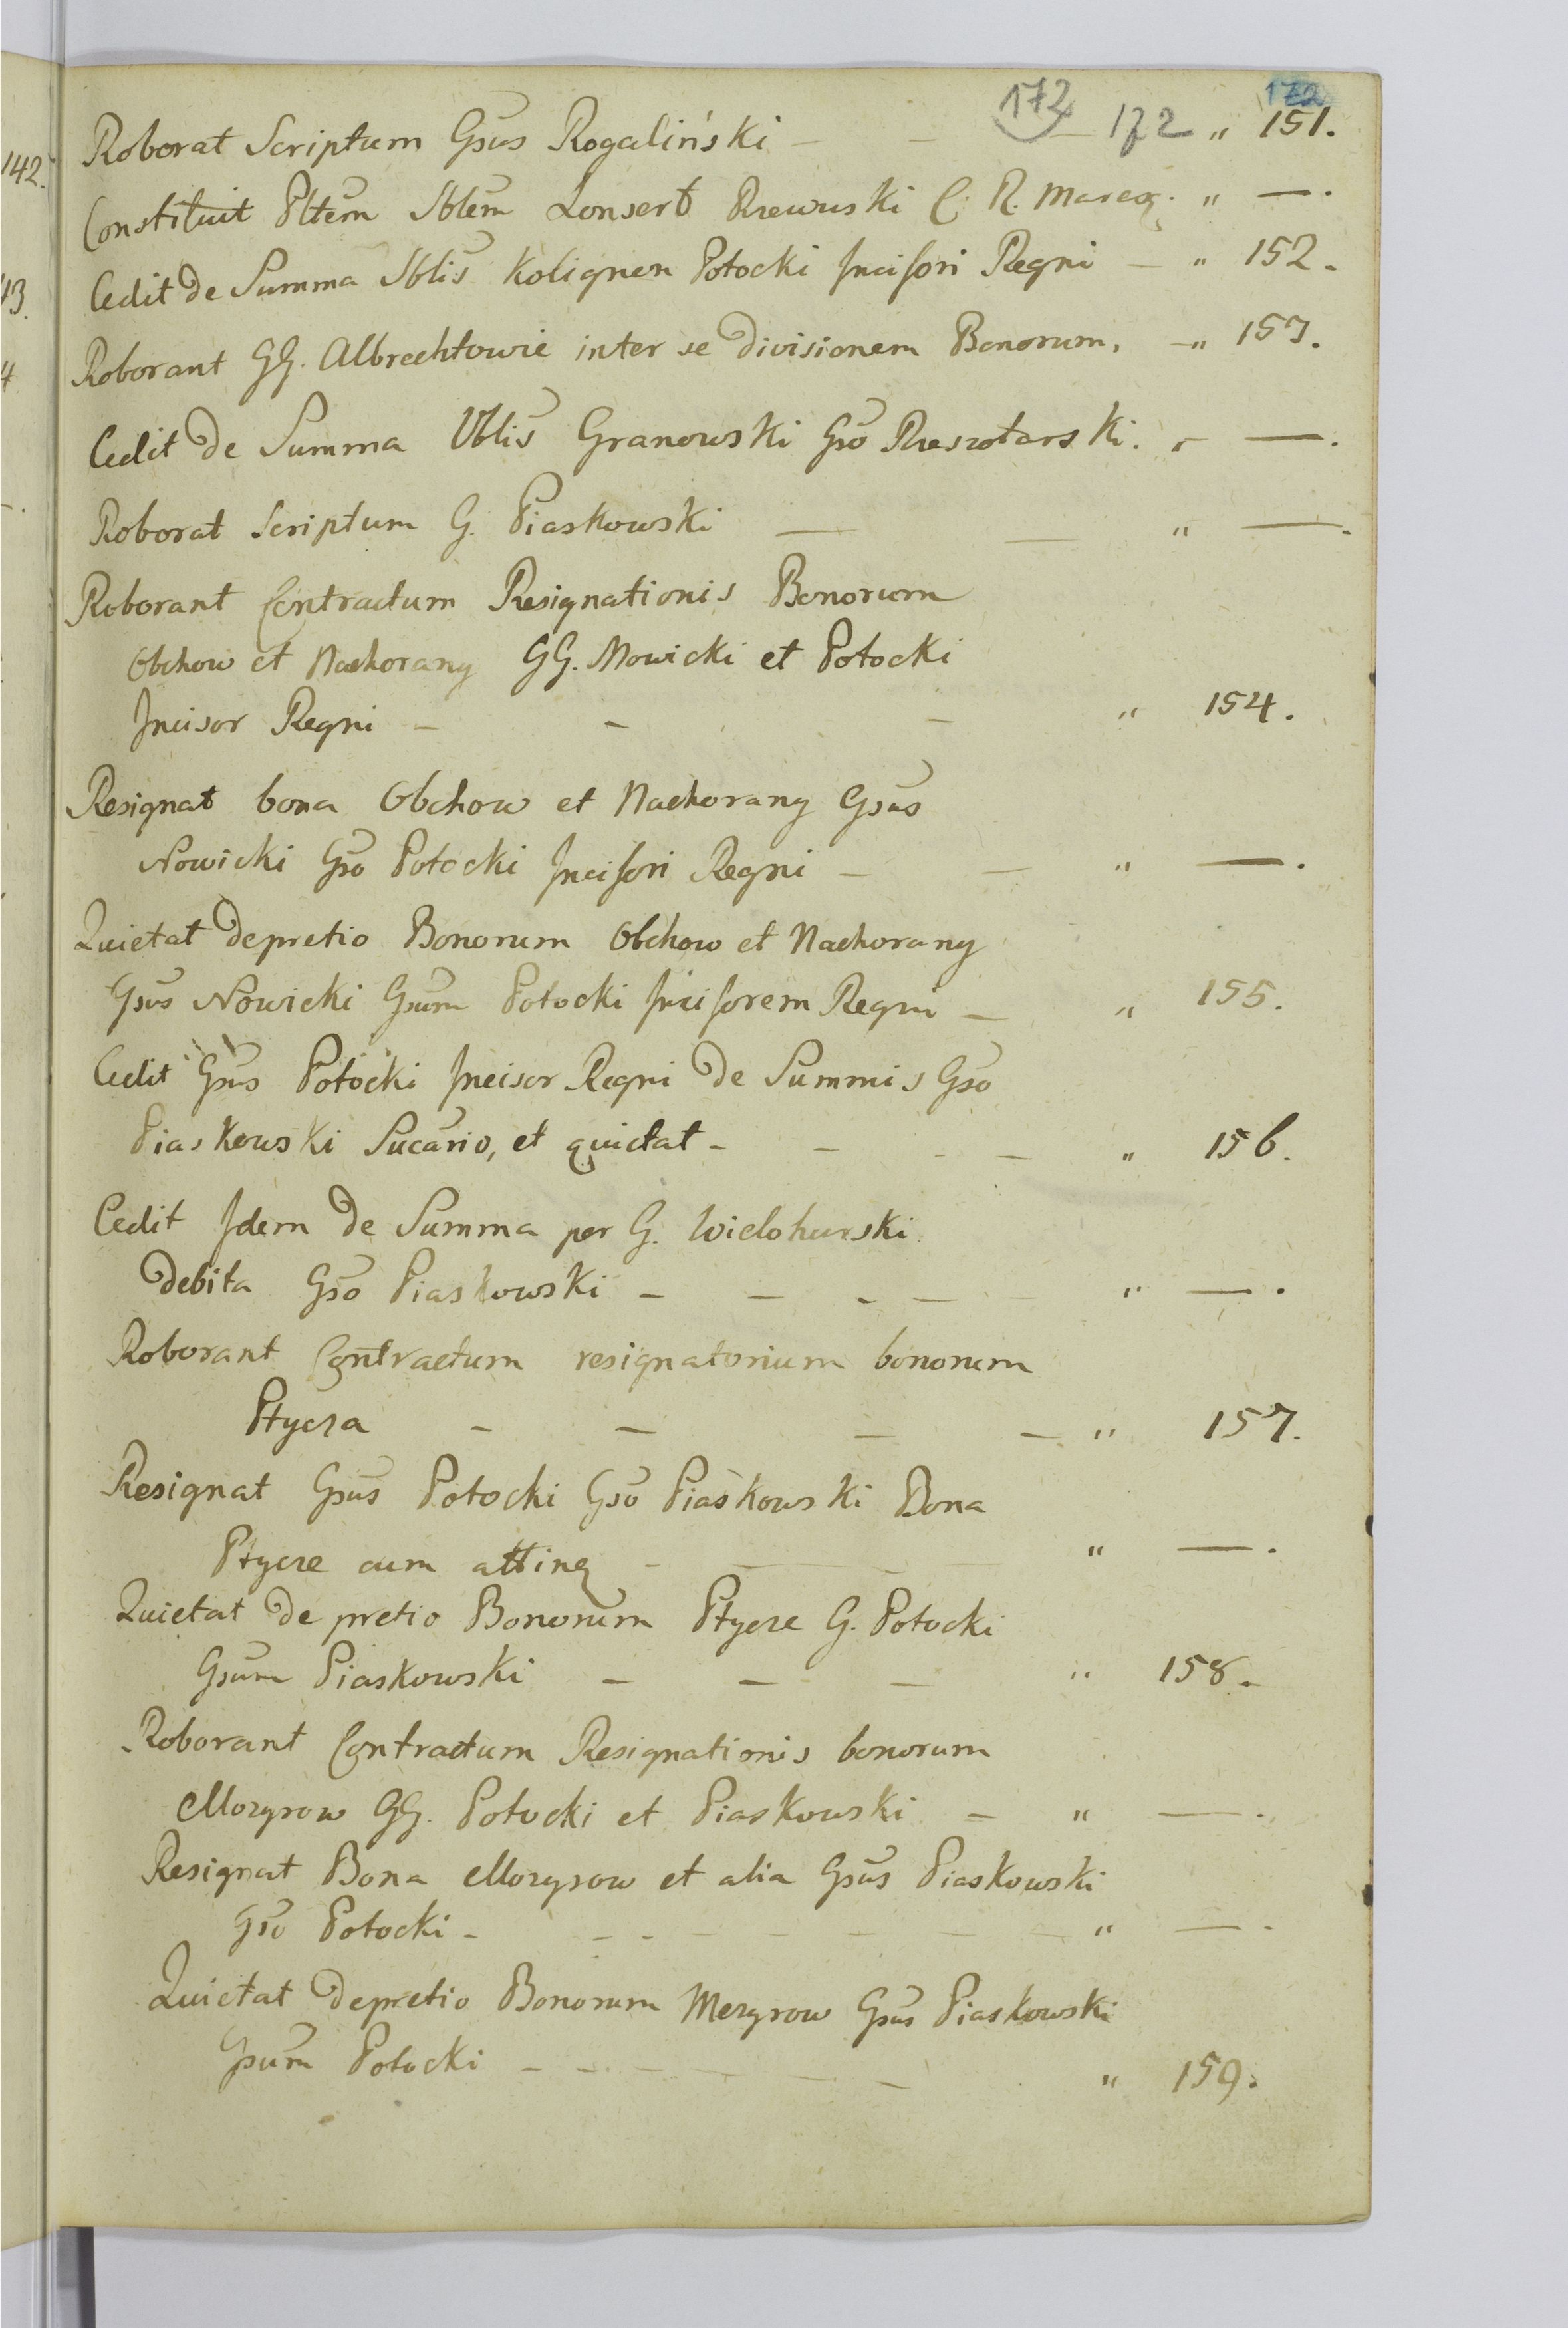 172 172 172
142. Roborat Scriptum Gsus Rogaliński — — " 151.
Constituit Pltem Jblem Lonsert Rzewuski C. R. Marex. " —.
43. Cedit de Summa Jblis Kolignen Potocki Incisori Regni — " 152.
4 Roborant GG. Albrechtowie inter se divisionem Bonorum. — " 153.
Cedit de Summa Vblis Granowski Gso Rzeszotarski. " —.
Roborat Scriptum G. Piaskowski — — " —.
Roborant Contractum Resignationis Bonorum
Obchow et Nachorany GG. Nowicki et Potocki
Incisor Regni — — — " 154.
Resignat bona Obchow et Nachorany Gsus
Nowicki Gso Potocki Incisori Regni — — " —.
Quietat depretio Bonorum Obchow et Nachorany
Gsus Nowicki Gsum Potocki Incisorem Regni — " 155.
Cedit Gsus Potocki Incisor Regni de Summis Gso
Piaskowski Sucario, et quietat — — — — " 156.
Cedit Idem de Summa per G. Wielohurski
debita Gso Piaskowski — — — — — " —.
Roborant Contractum resignatorium bonorum
Ptycza — — — — " 157.
Resignat Gsus Potocki Gso Piaskowski Bona
Ptycze cum atting — — " —.
Quietat de pretio Bonorum Ptycze G. Potocki
Gsum Piaskowski — — — " 158.
Roborant Contractum Resignationis bonorum
Mozyrow GG. Potocki et Piaskowski — " —.
Resignat Bona Mozyrow et alia Gsus Piaskowski
Gso Potocki — — — — — — — — " —.
Quietat depretio Bonorum Mozyrow Gsus Piaskowski
Gsum Potocki — — — — — " 159.